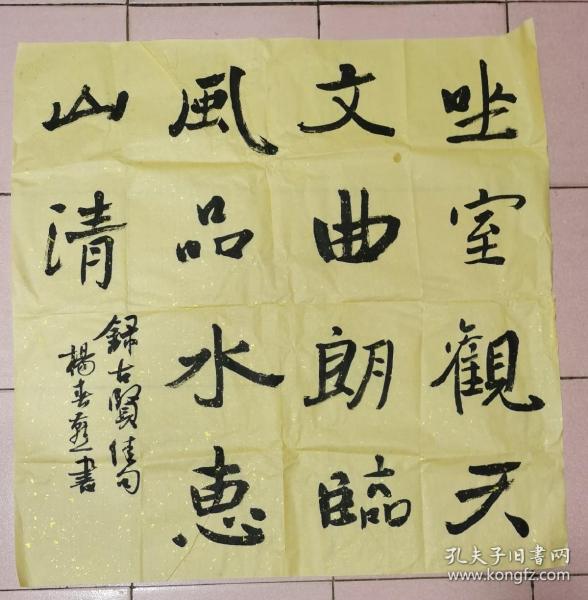 坐室觀天
文曲朗臨
風品水惠
山清
錄古賢佳句
楊春書
孔夫子旧書网
www.kongfz.com